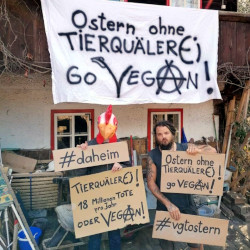 Ostern ohne
TIERQUÄLEREI
GO VEGAN!
#daheim
TIERQUÄLEREI
18 Millionen TOTE
pro Jahr
ODER VEGAN!
Ostern ohne
TIERQUÄLEREI
go VEGAN!
#vgtostern